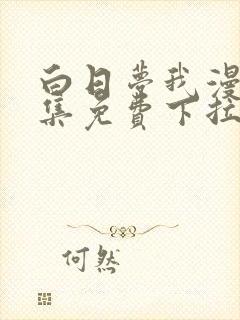 白日梦我漫
集免费下拉
何然